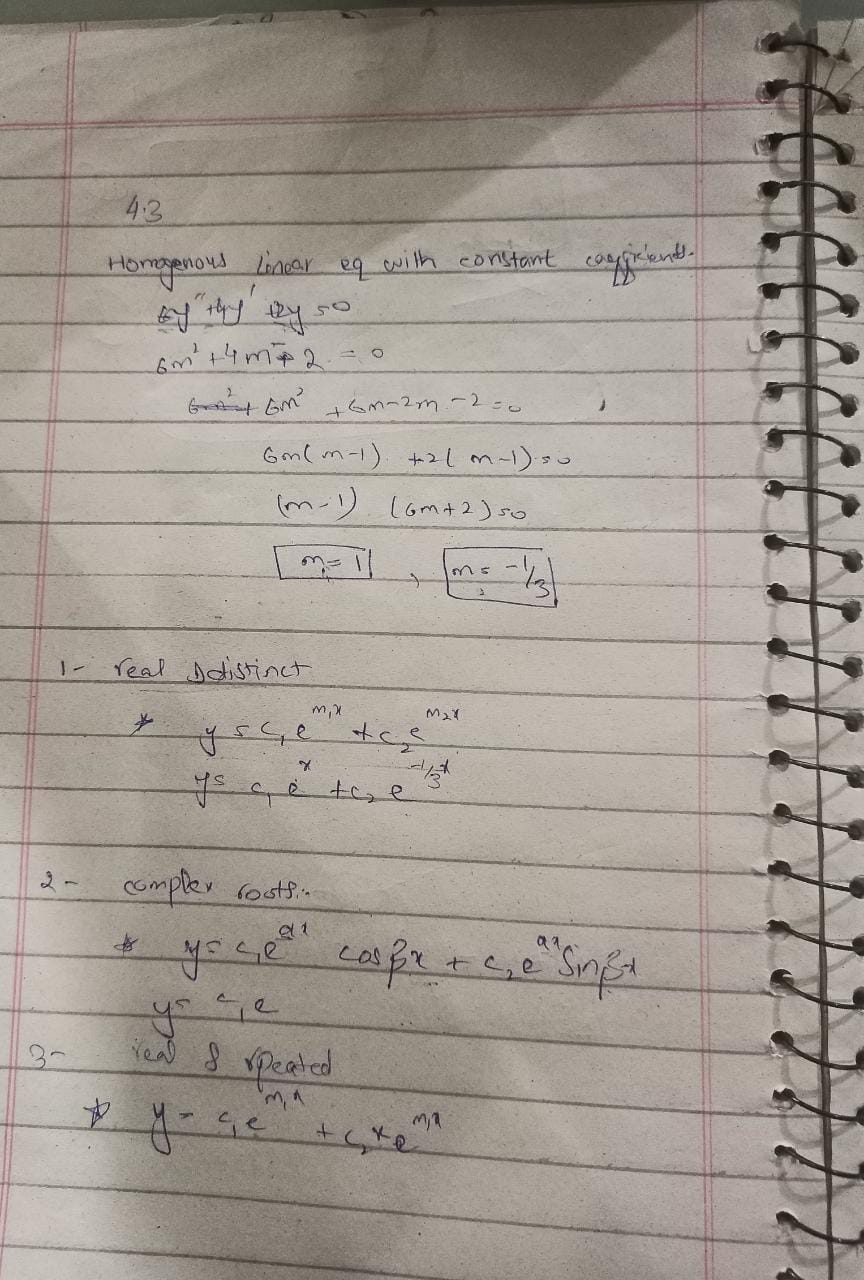 4.3
Homogenous Linear eq with constant coefficients.
6y" + 4y' + 2y = 0
6m² + 4m - 2 = 0
6m² + 6m² + 6m - 2m - 2 = 0
6m(m-1) + 2(m-1) = 0
(m-1) (6m+2) = 0
m = 1 , m = -1/3
1- real & distinct
* y = c₁e^m₁x + c₂e^m₂x
y = c₁e^x + c₂e^-1/3x
2- complex roots:-
* y = c₁e^αx cosβx + c₂e^αx Sinβx
y = c₁e
3- real & rpeated
* y = c₁e^m₁x + c₂xe^m₁x